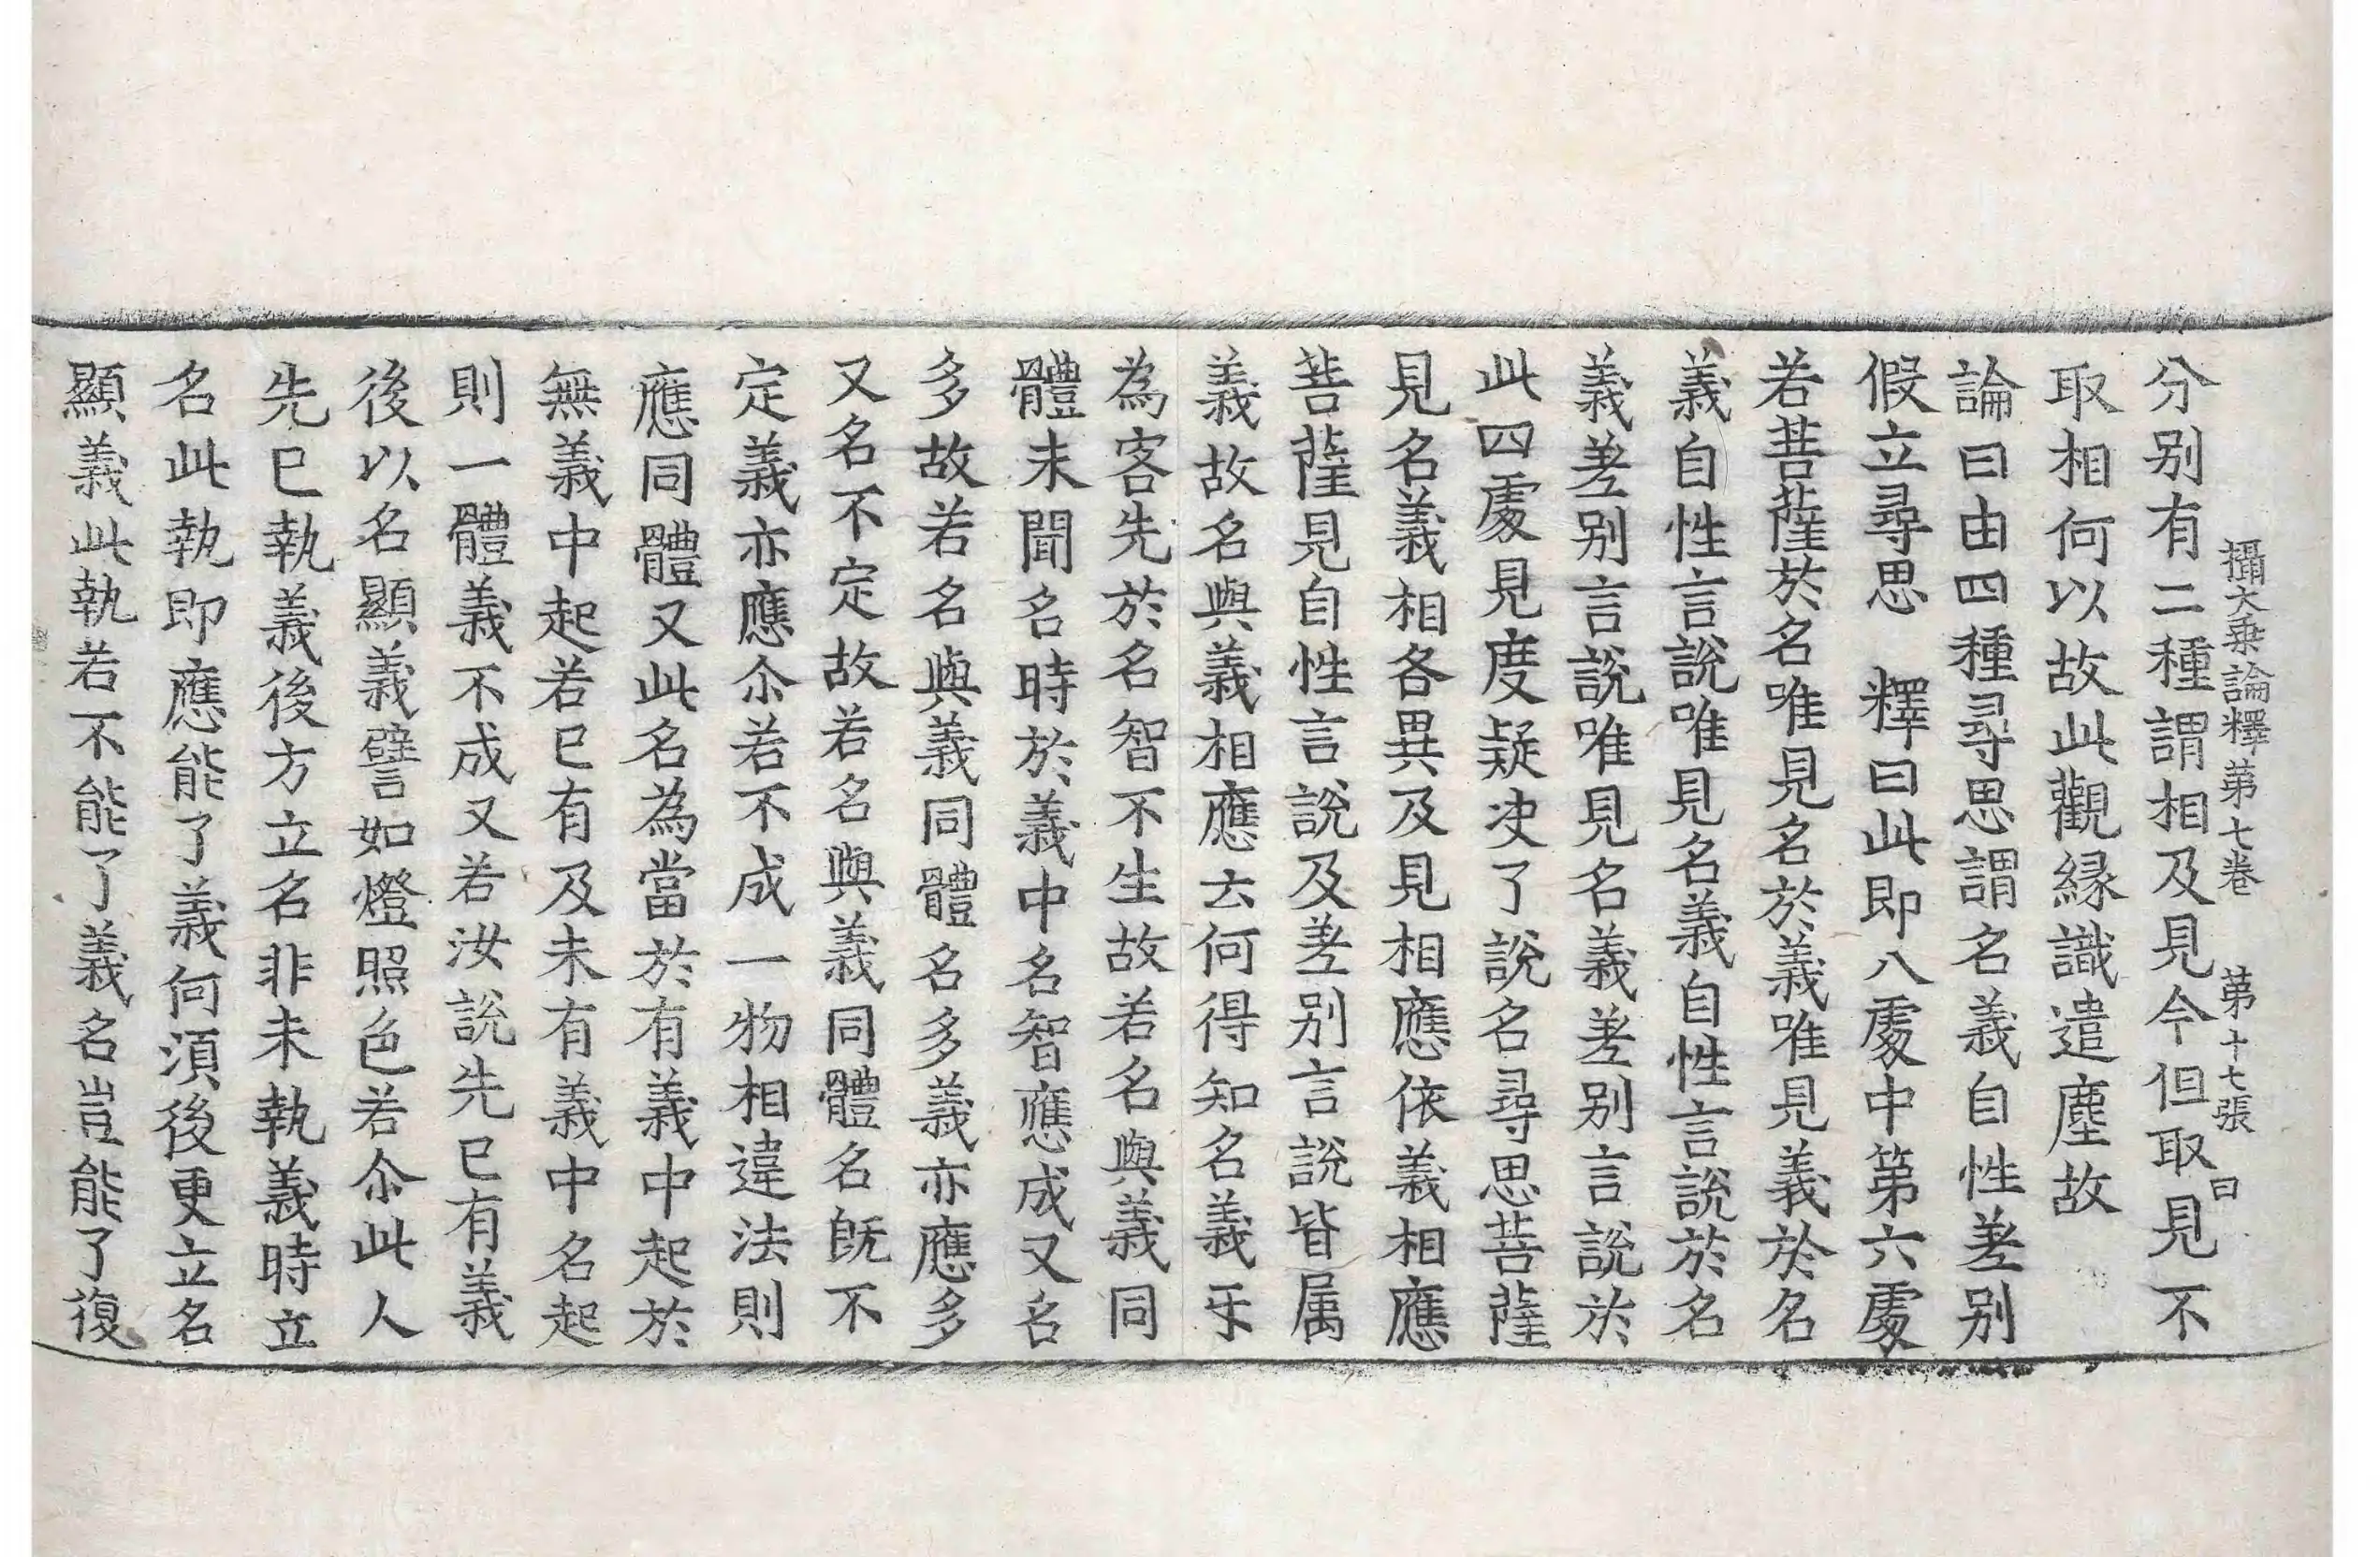 攝大乗論釋第七卷　第十七張　曰
分别有二種謂相及見今但取見不
取相何以故此觀縁識遣塵故
論曰由四種尋思謂名義自性差别
假立尋思　釋曰此即八處中第六處
若菩薩於名唯見名於義唯見義於名
義自性言說唯見名義自性言說於名
義差别言說唯見名義差别言說於
此四處見度疑决了說名尋思菩薩
見名義相各異及見相應依義相應
菩薩見自性言說及差别言說皆属
義故名與義相應云何得知名義㸦
為客先於名智不生故若名與義同
體未聞名時於義中名智應成又名
多故若名與義同體名多義亦應多
又名不定故若名與義同體名旣不
定義亦應尒若不成一物相違法則
應同體又此名為當於有義中起於
無義中起若巳有及未有義中名起
則一體義不成又若汝說先巳有義
後以名顯義譬如燈照色若尒此人
先巳執義後方立名非未執義時立
名此執即應能了義何湏後更立名
顯義此執若不能了義名豈能了復